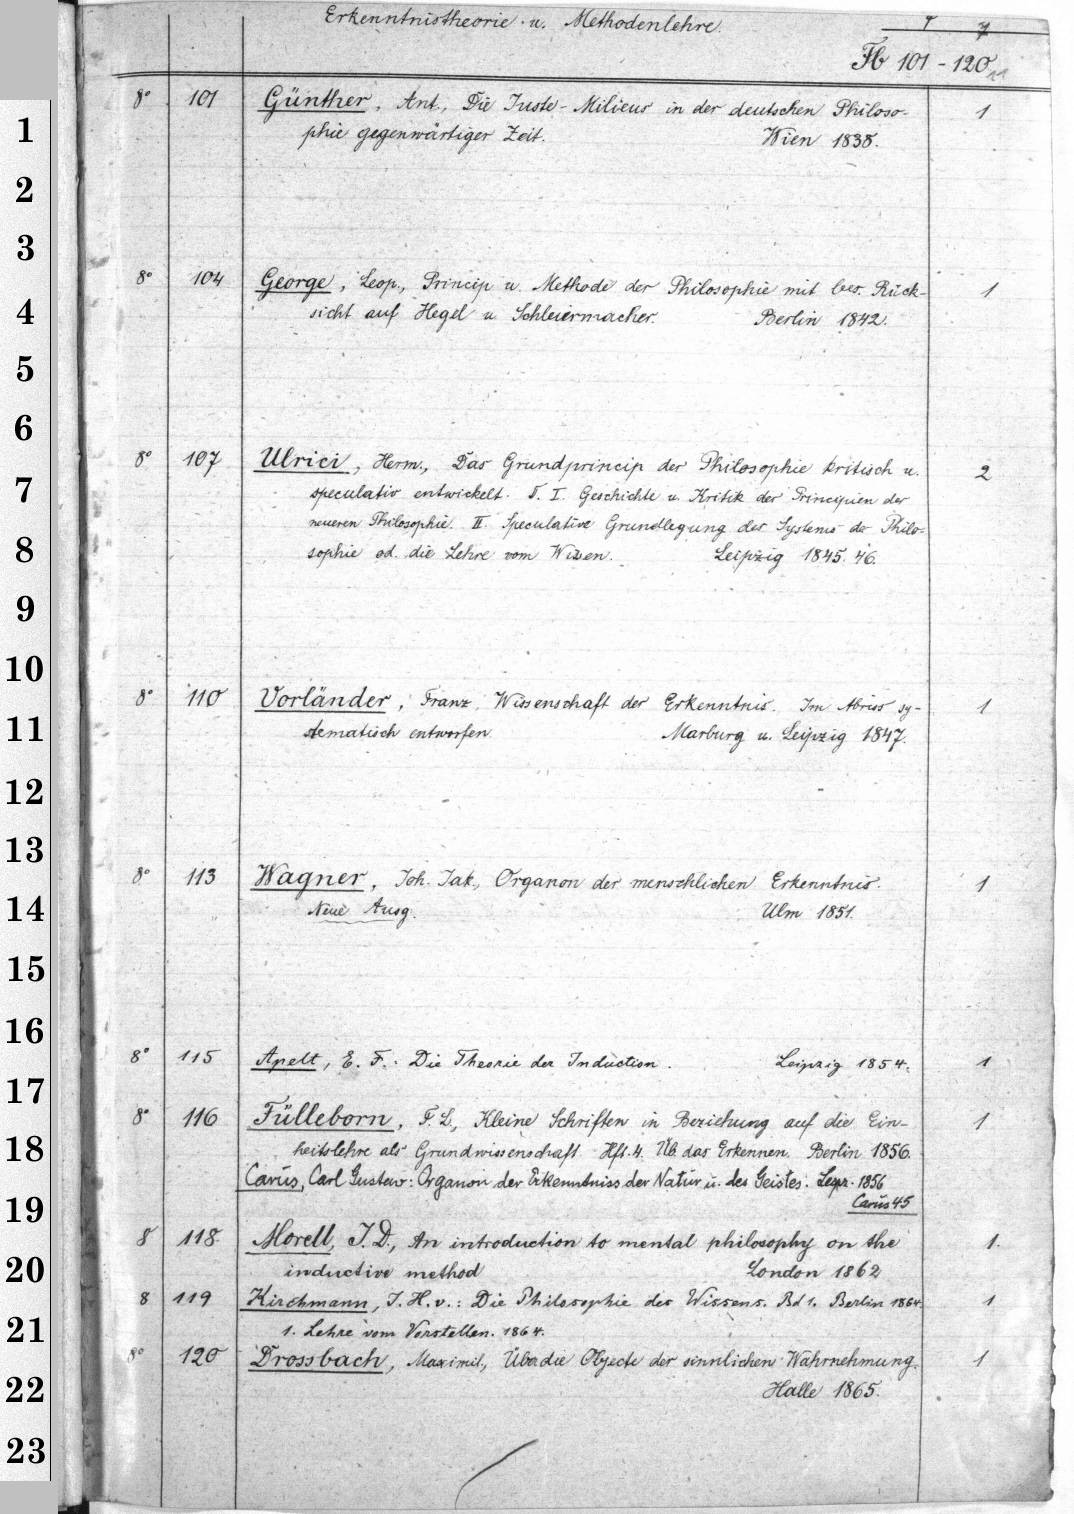 Erkenntnistheorie u. Methodenlehre.
7
Fb 101 - 120
8° 101 Günther, Ant., Die Juste-Milieus in der deutschen Philoso- 1
1
phie gegenwärtiger Zeit. Wien 1838.
2
3
8° 104 George, Leop., Princip u. Methode der Philosophie mit bes. Rück- 1
4
sicht auf Hegel u Schleiermacher. Berlin 1842.
5
6
8° 107 Ulrici, Herm., Das Grundprincip der Philosophie kritisch u. 2
7
speculativ entwickelt. T. I. Geschichte u. Kritik der Principien der
neueren Philosophie. II. Speculative Grundlegung des Systems der Philo-
8
sophie od. die Lehre vom Wissen. Leipzig 1845. 46.
9
10
8° 110 Vorländer, Franz, Wissenschaft der Erkenntnis. Im Abriss sy- 1
11
stematisch entworfen. Marburg u. Leipzig 1847.
12
13
8° 113 Wagner, Joh. Jak., Organon der menschlichen Erkenntnis. 1
14
Neue Ausg. Ulm 1851.
15
16
8° 115 Apelt, E. F. Die Theorie der Induction. Leipzig 1854. 1
17
8° 116 Fülleborn, F. L., Kleine Schriften in Beziehung auf die Ein- 1
18
heitslehre als Grundwissenschaft. Hft. 4. Üb. das Erkennen. Berlin 1856.
Carus, Carl Gustav: Organon der Erkenntniss der Natur u. des Geistes. Leipz. 1856
19
Carus 45
8 118 Morell, J. D., An introduction to mental philosophy on the 1.
20
inductive method London 1862
8 119 Kirchmann, J. H. v.: Die Philosophie des Wissens. Bd 1. Berlin 1864. 1
21
1. Lehre vom Vorstellen. 1864.
8° 120 Drossbach, Maximil., Über die Objecte der sinnlichen Wahrnehmung. 1
22
Halle 1865.
23